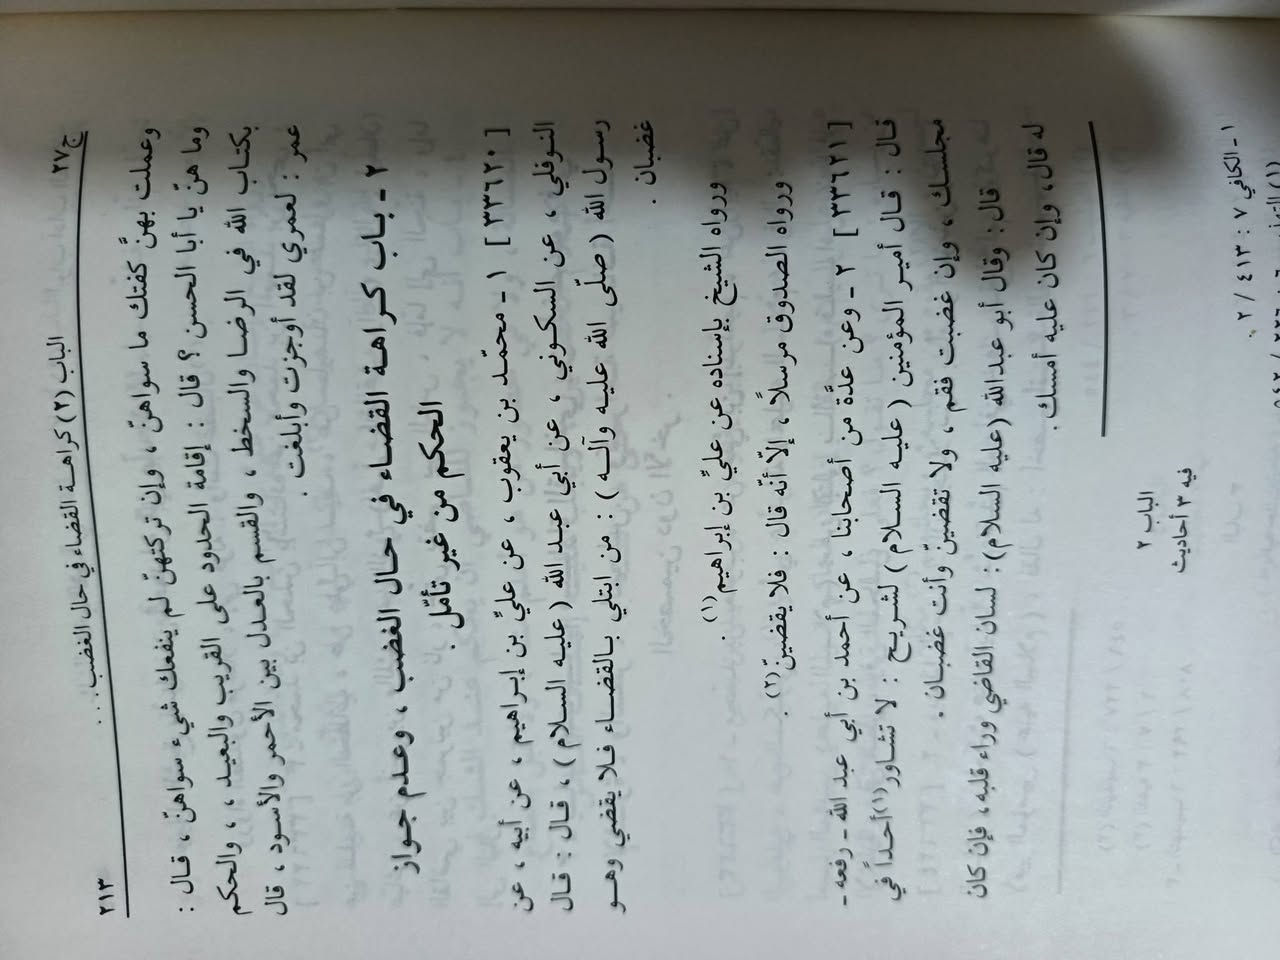 ج٢٧ الباب (٢) كراهة القضاء في حال الغضب . . . ٢١٣
وعملت بهنَّ كفتك ما سواهنّ ، وإن تركتهنّ لم ينفعك شيء سواهنّ ، قال :
وما هنّ يا أبا الحسن ؟ قال : إقامة الحدود على القريب والبعيد ، والحكم
بكتاب الله في الرضا والسخط ، والقسم بالعدل بين الأحمر والأسود ، قال
عمر : لعمري لقد أوجزت وأبلغت .
٢ - باب كراهة القضاء في حال الغضب ، وعدم جواز
الحكم من غير تأمّل .
[ ٣٣٦٢٠ ] ١ - محمّد بن يعقوب ، عن عليِّ بن إبراهيم ، عن أبيه ، عن
النوفلي ، عن السكوني ، عن أبي عبد الله ( عليه السلام ) ، قال : قال
رسول الله ( صلّى الله عليه وآله ) : من ابتلي بالقضاء فلا يقضي وهو
غضبان .
ورواه الشيخ بإسناده عن عليِّ بن إبراهيم (١) .
ورواه الصدوق مرسلاً ، إلّا أنّه قال : فلا يقضينّ (٢) .
[ ٣٣٦٢١ ] ٢ - وعن عدَّة من أصحابنا ، عن أحمد بن أبي عبد الله - رفعه -
قال : قال أمير المؤمنين ( عليه السلام ) لشريح : لا تشاور (١) أحداً في
مجلسك ، وإن غضبت فقم ، ولا تقضينّ وأنت غضبان .
قال : وقال أبو عبدالله (عليه السلام) : لسان القاضي وراء قلبه ، فإن كان
له قال ، وإن كان عليه أمسك .
الباب ٢
فيه ٣ أحاديث
١ - الكافي ٧ : ٤١٣ / ٢